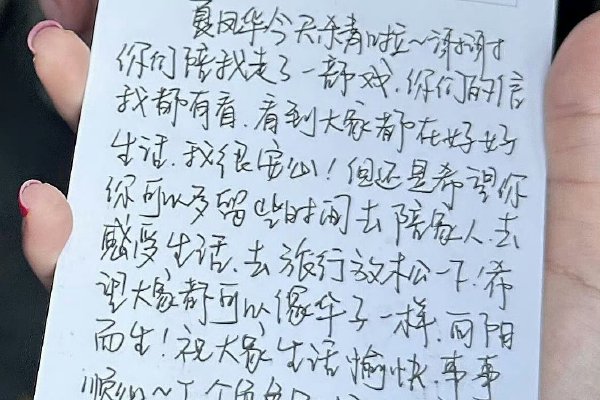 夏凤华今天杀青啦~谢谢
你们陪我走了一部戏，你们的信
我都有看，看到大家都在好好
生活，我很安心！但还是希望你
你可以多留些时间去陪家人、去
感受生活、去旅行放松一下！希
望大家都可以像华子一样，向阳
而生！祝大家生活愉快，事事
顺心~下个角色见